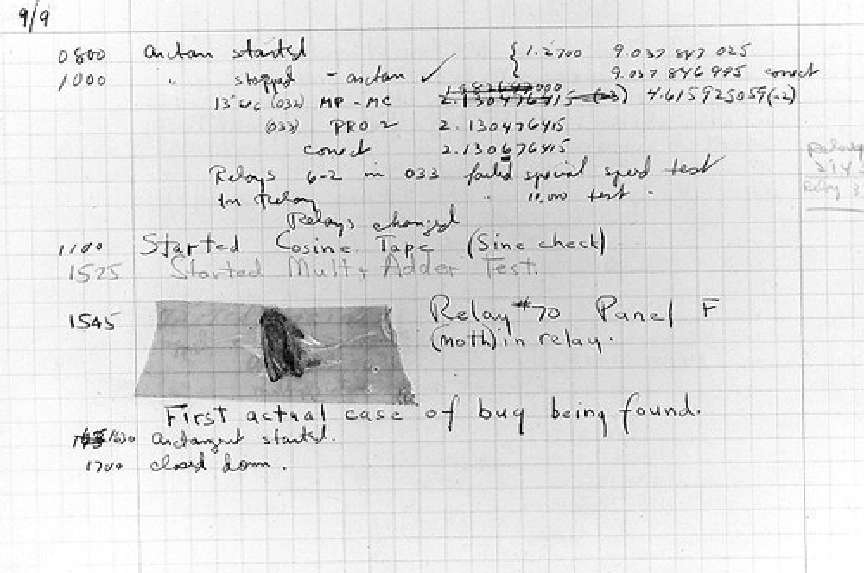 9/9
0800 arctan started { 1.2700 9.037 847 025
1000 " stopped - arctan ✓ 9.037 846 995 correct
13"uc (032) MP - MC 2.130476415 (-3) 4.615925059(-2)
(033) PRO 2 2.130476415
correct 2.130676415
Relays 6-2 in 033 failed special speed test
in relay " 10,000 test.
Relays changed
1100 Started Cosine Tape (Sine check)
1525 Started Mult + Adder Test.
1545 Relay #70 Panel F
(moth) in relay.
First actual case of bug being found.
1630 arctangent started.
1700 closed down.